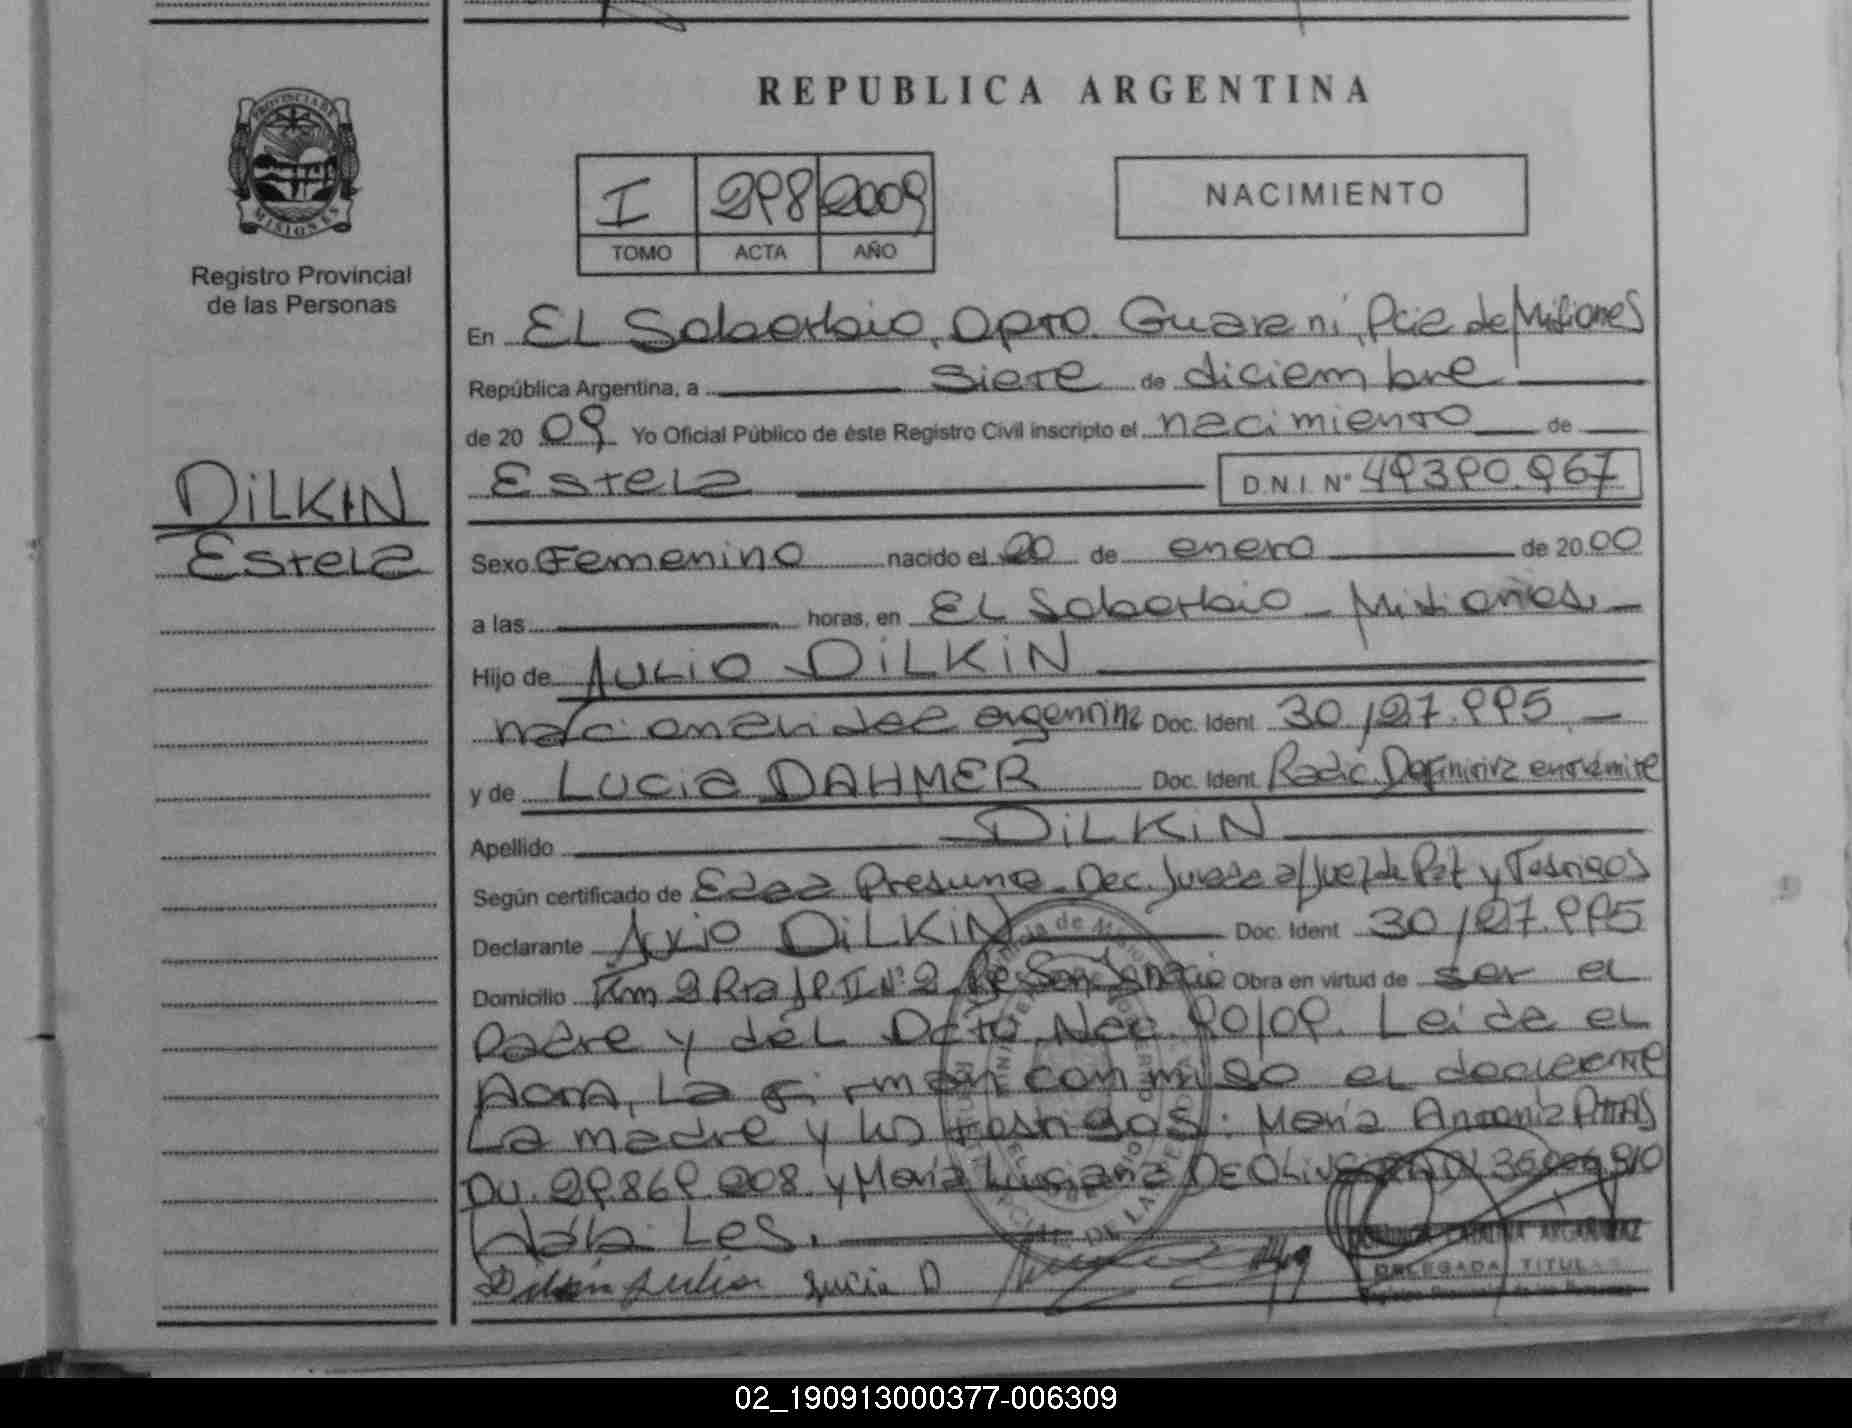 REPUBLICA ARGENTINA
PROVINCIA DE
MISIONES
Registro Provincial
de las Personas
I 298 2009
TOMO ACTA AÑO
NACIMIENTO
En EL Soberbio, Dpto. Guarani, Pcia de Misiones
República Argentina, a siete de diciembre
de 20 09 Yo Oficial Público de éste Registro Civil inscripto el nacimiento de
Estela D.N.I. Nº 49390.967
DiLKIN
Estela
Sexo Femenino nacido el 20 de enero de 20 00
a las horas, en EL Soberbio - Misiones
Hijo de JULIO DiLKiN
nacionalidad argentina Doc. Ident. 30.127.995
y de Lucia DAHMER Doc. Ident. Radic. Definitiva en trámite
Apellido DiLKiN
Según certificado de Edad Presunta Dec. Jurada a/Juez de Paz y Testigos
Declarante Julio DiLKiN Doc. Ident 30.127.995
Domicilio Km 2 Rta Nº 2 San Ignacio Obra en virtud de ser el
padre y del Dcto. Nac. 90/09. Leida el
Acta, La firman conmigo el declarante
La madre y los testigos: Maria Antonia
DU. 29.869.208 y Maria Luciana DE OLIVEIRA
Les.
Dilkin Julio Lucia D
DELEGADA TITULAR
02_190913000377-006309